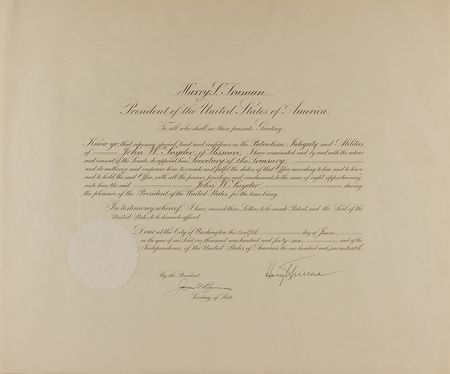 Harry S. Truman
President of the United States of America,
To all who shall see these presents, Greeting:
Know ye, that reposing special trust and confidence in the Patriotism, Integrity and Abilities
of John W. Snyder, of Missouri, I have nominated, and, by and with the advice
and consent of the Senate, do appoint him Secretary of the Treasury
and do authorize and empower him to execute and fulfil the duties of that Office according to law, and to have
and to hold the said Office, with all the powers, privileges and emoluments to the same of right appertaining
unto him the said John W. Snyder during
the pleasure of the President of the United States, for the time being.
In testimony whereof, I have caused these Letters to be made Patent, and the Seal of the
United States to be hereunto affixed.
Done at the City of Washington this twelfth day of June,
in the year of our Lord one thousand nine hundred and forty-six, and of the
Independence of the United States of America the one hundred and seventieth.
By the President: Harry S. Truman
James F. Byrnes
Secretary of State.